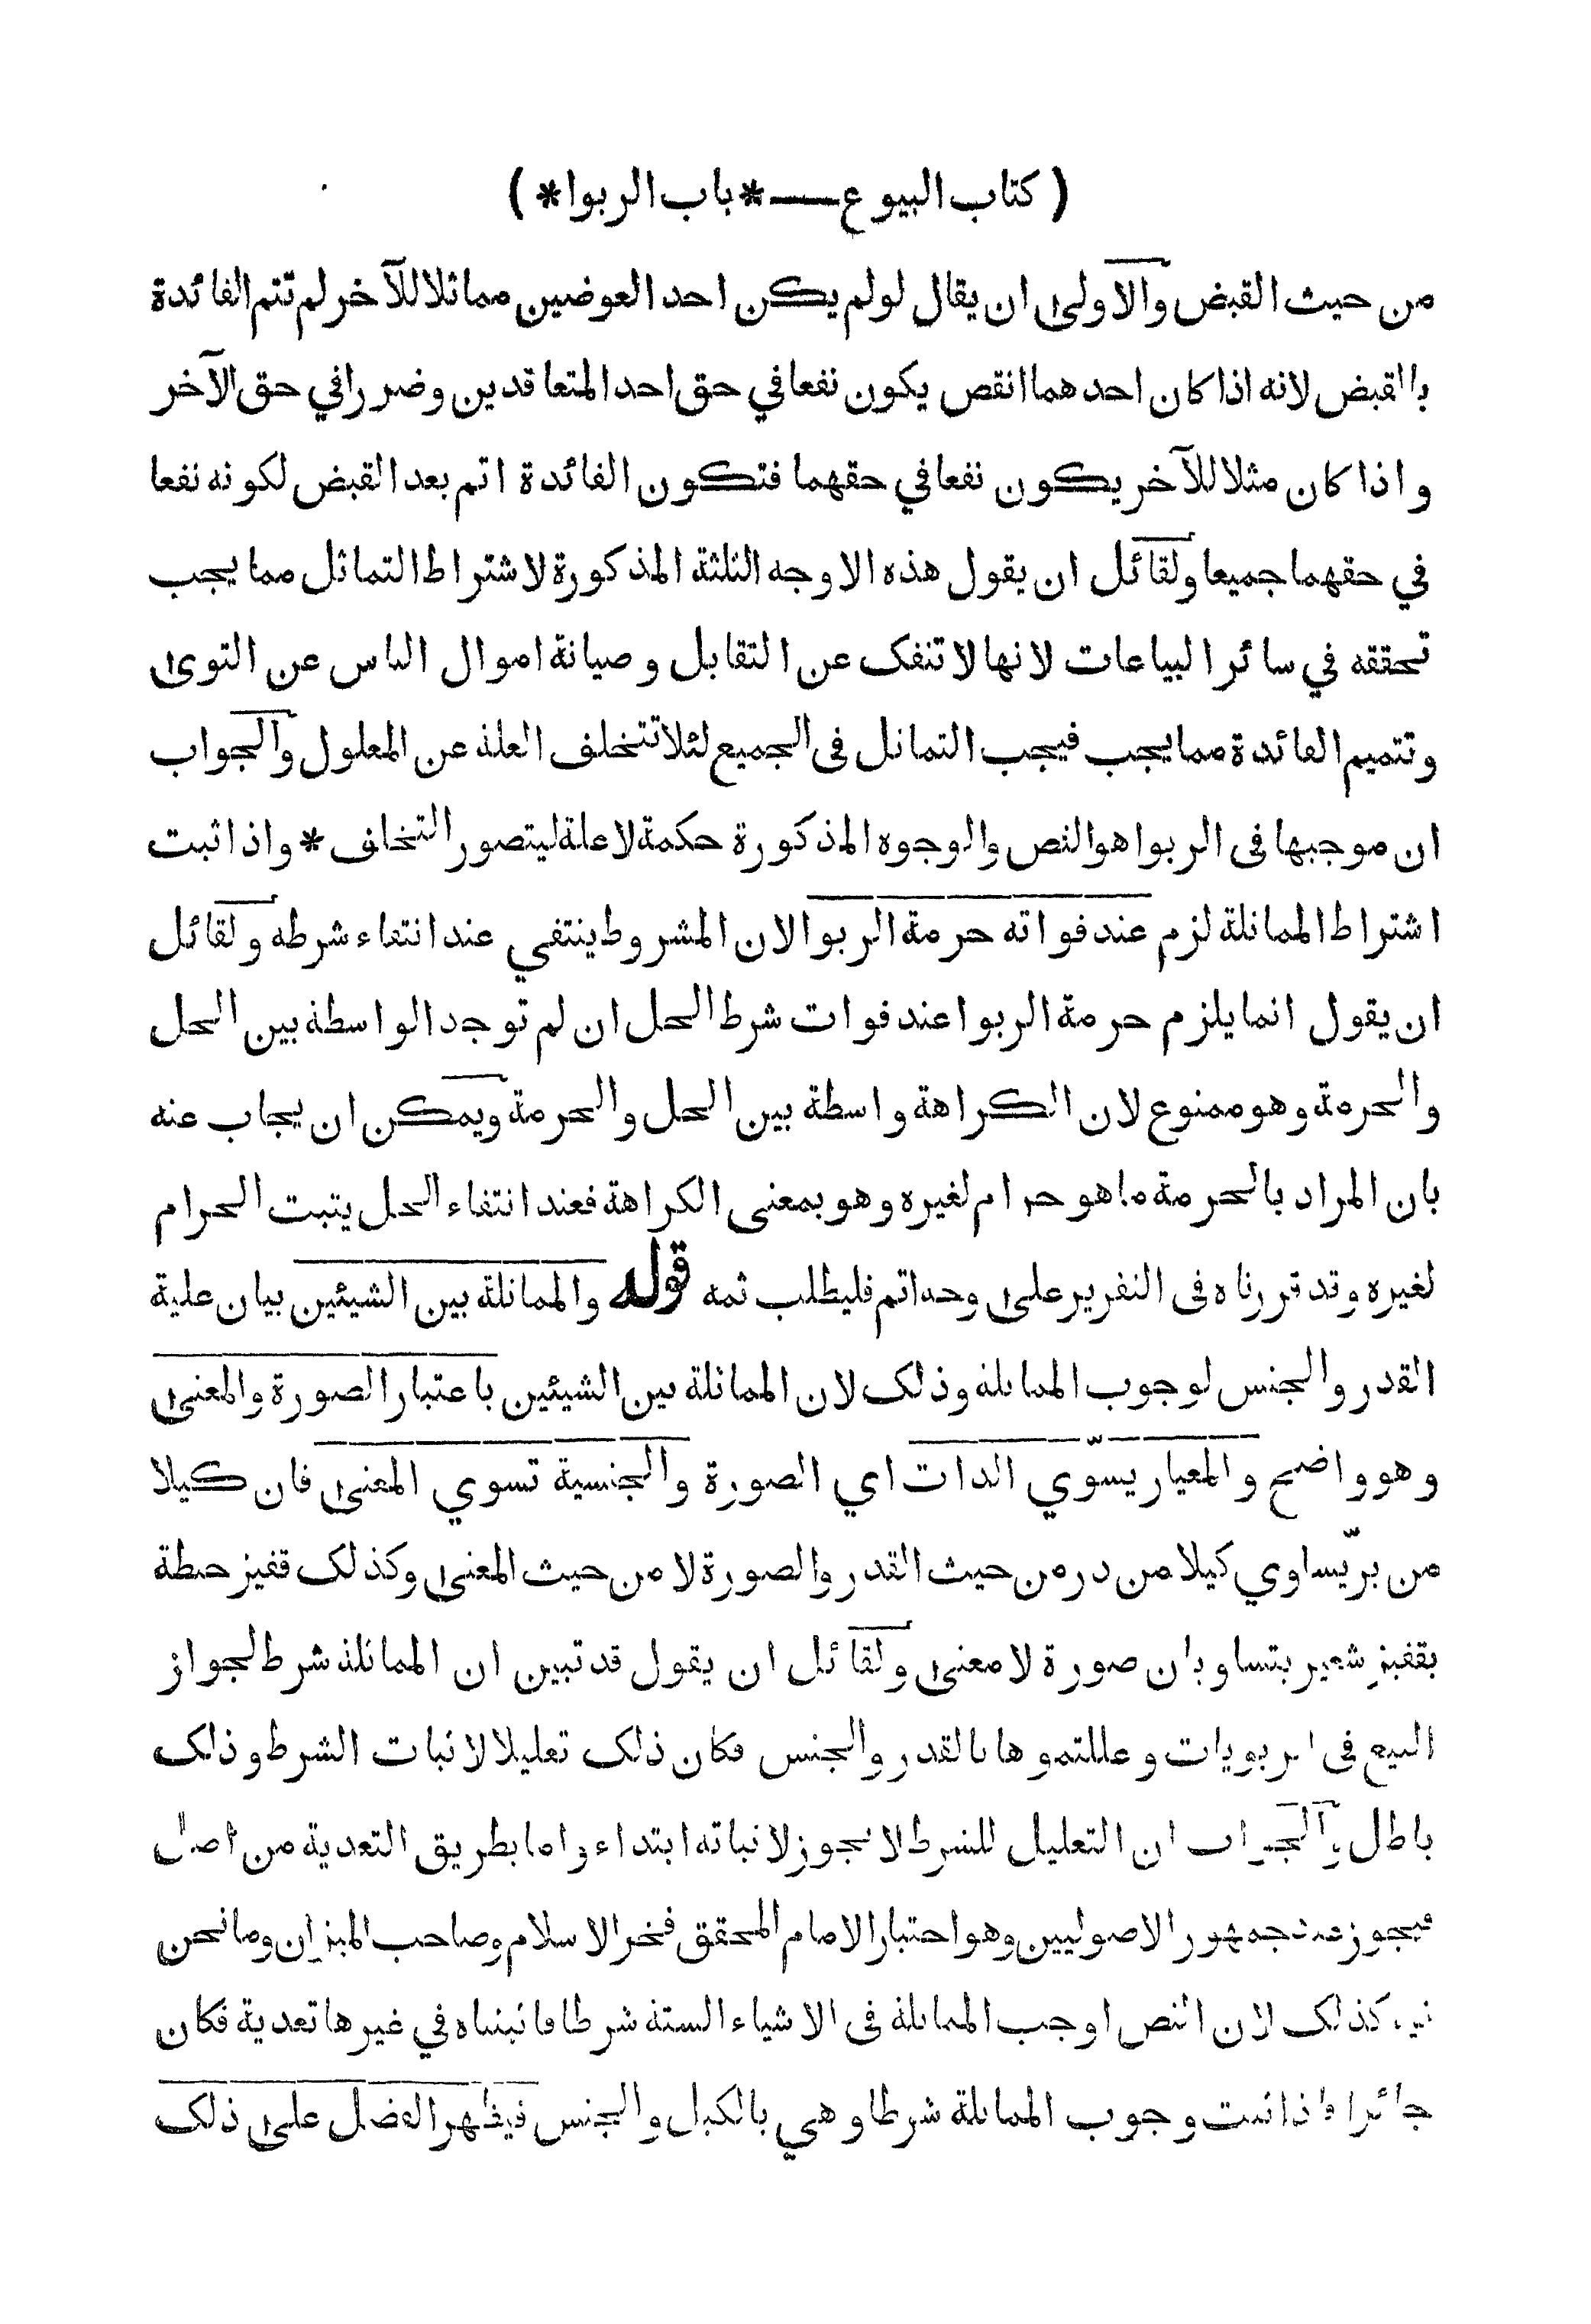 ( كتاب البيوع — * باب الربوا * )
من حيث القبض والاولى ان يقال لولم يكن احد العوضين مماثلا للآخر لم تتم الفائدة
بالقبض لانه اذا كان احدهما انقص يكون نفعا في حق احد المتعاقدين وضررا في حق الآخر
واذا كان مثلا للآخر يكون نفعا في حقهما فتكون الفائدة اتم بعد القبض لكونه نفعا
في حقهما جميعا ولقائل ان يقول هذه الاوجه الثلثة المذكورة لاشتراط التماثل مما يجب
تحققه في سائر البياعات لانها لا تنفك عن التقابل وصيانة اموال الناس عن التوى
وتتميم الفائدة مما يجب فيجب التماثل فى الجميع لئلا تتخلف العلة عن المعلول والجواب
ان موجبها فى الربوا هو النص والوجوه المذكورة حكمة لا علة ليتصور التخلف * واذا ثبت
اشتراط المماثلة لزم عند فواته حرمة الربوا لان المشروط ينتفي عند انتفاء شرطه ولقائل
ان يقول انما يلزم حرمة الربوا عند فوات شرط الحل ان لم توجد الواسطة بين الحل
والحرمة وهو ممنوع لان الكراهة واسطة بين الحل والحرمة ويمكن ان يجاب عنه
بان المراد بالحرمة ما هو حرام لغيره وهو بمعنى الكراهة فعند انتفاء الحل يثبت الحرام
لغيره وقد قررناه فى التقرير على وجه اتم فليطلب ثمه قوله والمماثلة بين الشيئين بيان علية
القدر والجنس لوجوب المماثلة وذلك لان المماثلة بين الشيئين باعتبار الصورة والمعنى
وهو واضح والمعيار يسوّي الذات اي الصورة والجنسية تسوي المعنى فان كيلا
من برّ يساوي كيلا من در من حيث القدر والصورة لا من حيث المعنى وكذلك قفيز حنطة
بقفيز شعير يتساويان صورة لا معنى ولقائل ان يقول قد تبين ان المماثلة شرط لجواز
البيع فى الربويات وعللتموها بالقدر والجنس فكان ذلك تعليلا لاثبات الشرط وذلك
باطل والجواب ان التعليل للشرط لا يجوز لاثباته ابتداء واما بطريق التعدية من اصل
فيجوز عند جمهور الاصوليين وهو اختيار الامام المحقق فخر الاسلام وصاحب الميزان وما نحن
فيه كذلك لان النص اوجب المماثلة فى الاشياء الستة شرطا فاثبتناه في غيرها تعدية فكان
جائزا فاذا ثبت وجوب المماثلة شرطا وهي بالكيل والجنس فيظهر الفضل على ذلك